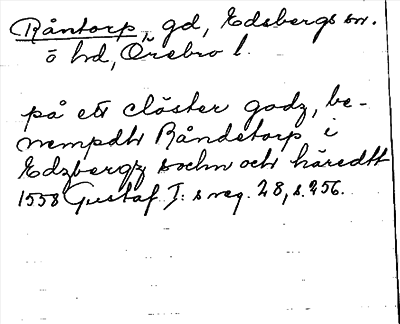 Råntorp, gd, Edsbergs sn.
o hd, Örebro l.
på ett clöster godz, be-
nempdt Råndetorp i
Edzbergz sochn och häredtt
1558 Gustaf I: s reg. 28, s. 256.